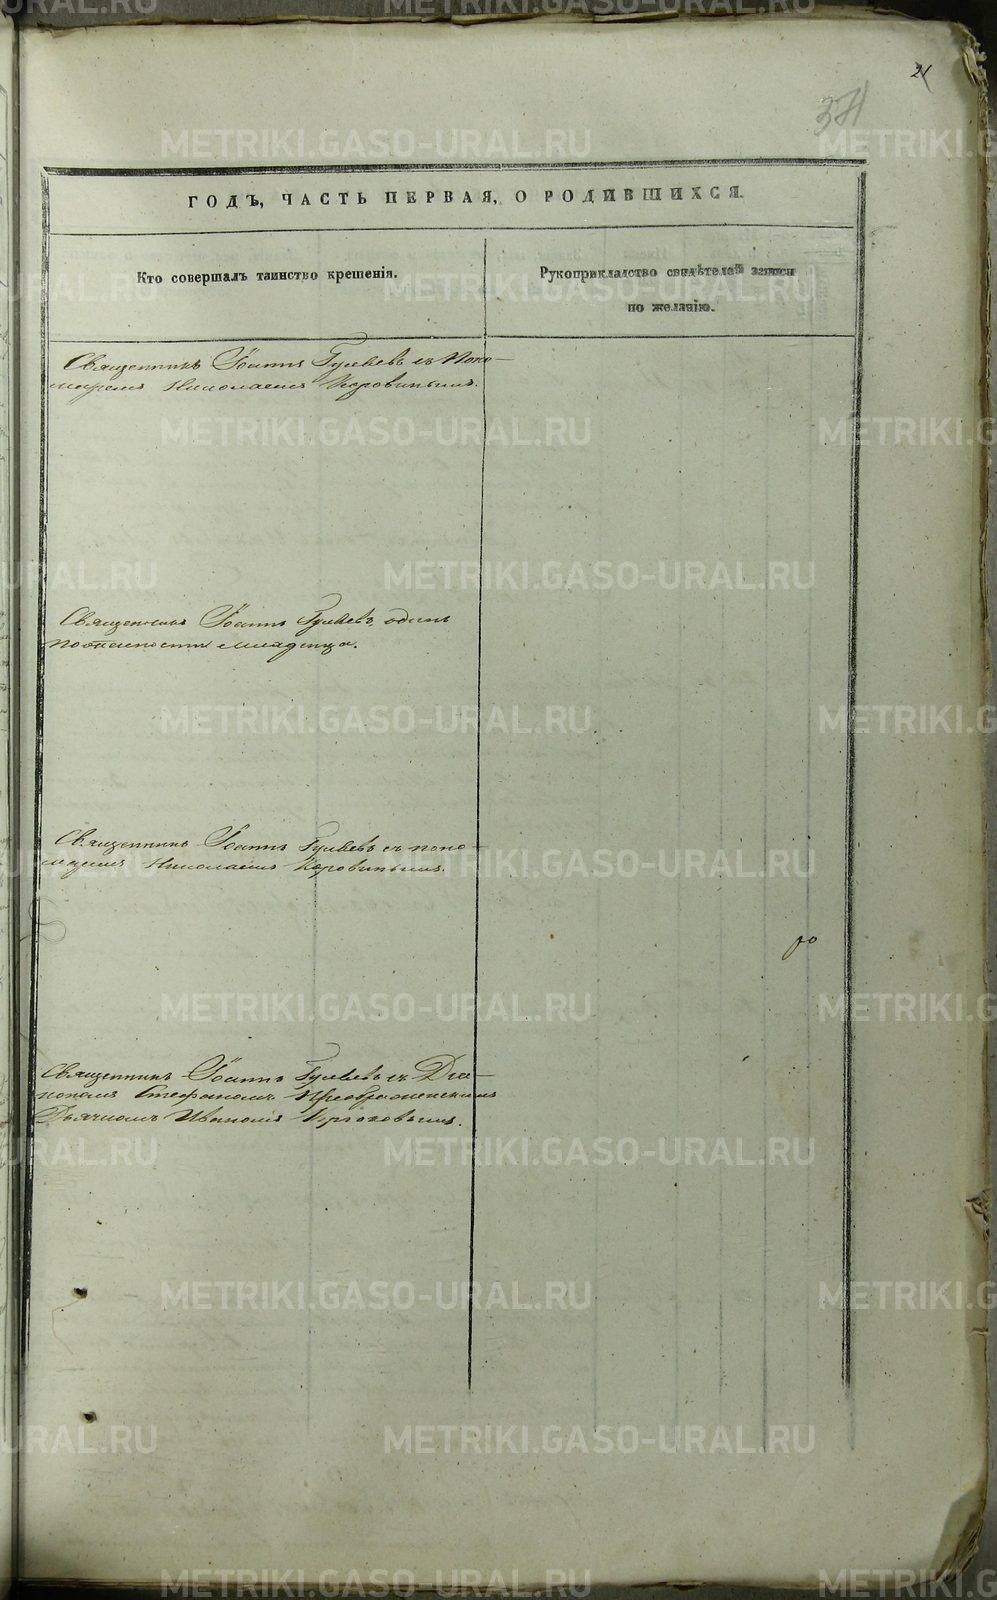 21
371
ГОДЪ, ЧАСТЬ ПЕРВАЯ, О РОДИВШИХСЯ.
Кто совершалъ таинство крещенія.
Рукоприкладство свидѣтелей записи
по желанію.
Священникъ Іоаннъ Гуляевъ съ Поно-
маремъ Николаемъ Коровинымъ.
Священникъ Іоаннъ Гуляевъ, одинъ
по опасности младенца.
Священникъ Іоаннъ Гуляевъ съ поно-
маремъ Николаемъ Коровинымъ.
Священникъ Іоаннъ Гуляевъ съ Діа-
кономъ Стефаномъ Преображенскимъ
Дьячкомъ Иваномъ
METRIKI.GASO-URAL.RU